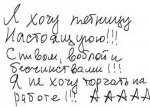 Я хочу пятницу
Настоящую!!!
С твом, воблой и
бесчинствами!!!
Я не хочу торчать на
работе!!! АААААА